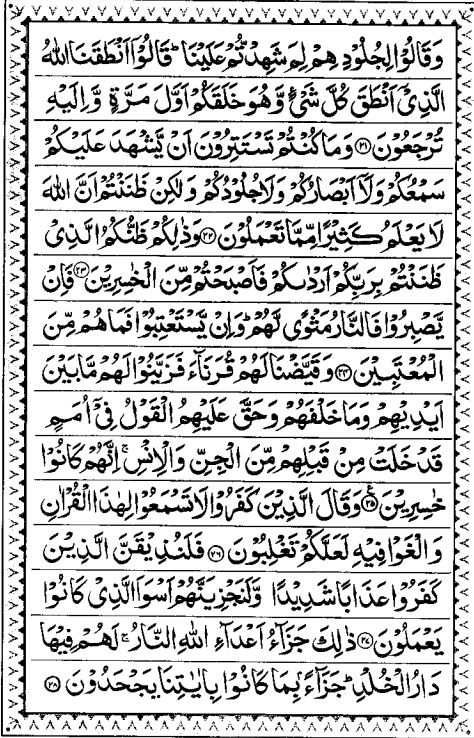 وَقَالُوْا لِجُلُوْدِهِمْ لِمَ شَهِدْتُّمْ عَلَيْنَا ؕ قَالُوْۤا اَنْطَقَنَا اللّٰهُ
الَّذِیْۤ اَنْطَقَ كُلَّ شَیْءٍ وَّهُوَ خَلَقَكُمْ اَوَّلَ مَرَّةٍ وَّاِلَیْهِ
تُرْجَعُوْنَ ﴿۲۱﴾ وَمَا كُنْتُمْ تَسْتَتِرُوْنَ اَنْ یَّشْهَدَ عَلَیْكُمْ
سَمْعُكُمْ وَلَاۤ اَبْصَارُكُمْ وَلَا جُلُوْدُكُمْ وَلٰكِنْ ظَنَنْتُمْ اَنَّ اللّٰهَ
لَا یَعْلَمُ كَثِیْرًا مِّمَّا تَعْمَلُوْنَ ﴿۲۲﴾ وَذٰلِكُمْ ظَنُّكُمُ الَّذِیْ
ظَنَنْتُمْ بِرَبِّكُمْ اَرْدٰىكُمْ فَاَصْبَحْتُمْ مِّنَ الْخٰسِرِیْنَ ﴿۲۳﴾ فَاِنْ
یَّصْبِرُوْا فَالنَّارُ مَثْوًی لَّهُمْ ؕ وَاِنْ یَّسْتَعْتِبُوْا فَمَا هُمْ مِّنَ
الْمُعْتَبِیْنَ ﴿۲۴﴾ وَقَیَّضْنَا لَهُمْ قُرَنَآءَ فَزَیَّنُوْا لَهُمْ مَّا بَیْنَ
اَیْدِیْهِمْ وَمَا خَلْفَهُمْ وَحَقَّ عَلَیْهِمُ الْقَوْلُ فِیْۤ اُمَمٍ
قَدْ خَلَتْ مِنْ قَبْلِهِمْ مِّنَ الْجِنِّ وَالْاِنْسِ ۚ اِنَّهُمْ كَانُوْا
خٰسِرِیْنَ ﴿۲۵﴾ وَقَالَ الَّذِیْنَ كَفَرُوْا لَا تَسْمَعُوْا لِهٰذَا الْقُرْاٰنِ
وَالْغَوْا فِیْهِ لَعَلَّكُمْ تَغْلِبُوْنَ ﴿۲۶﴾ فَلَنُذِیْقَنَّ الَّذِیْنَ
كَفَرُوْا عَذَابًا شَدِیْدًا وَّلَنَجْزِیَنَّهُمْ اَسْوَاَ الَّذِیْ كَانُوْا
یَعْمَلُوْنَ ﴿۲۷﴾ ذٰلِكَ جَزَآءُ اَعْدَآءِ اللّٰهِ النَّارُ ۚ لَهُمْ فِیْهَا
دَارُ الْخُلْدِ ؕ جَزَآءًۢ بِمَا كَانُوْا بِاٰیٰتِنَا یَجْحَدُوْنَ ﴿۲۸﴾